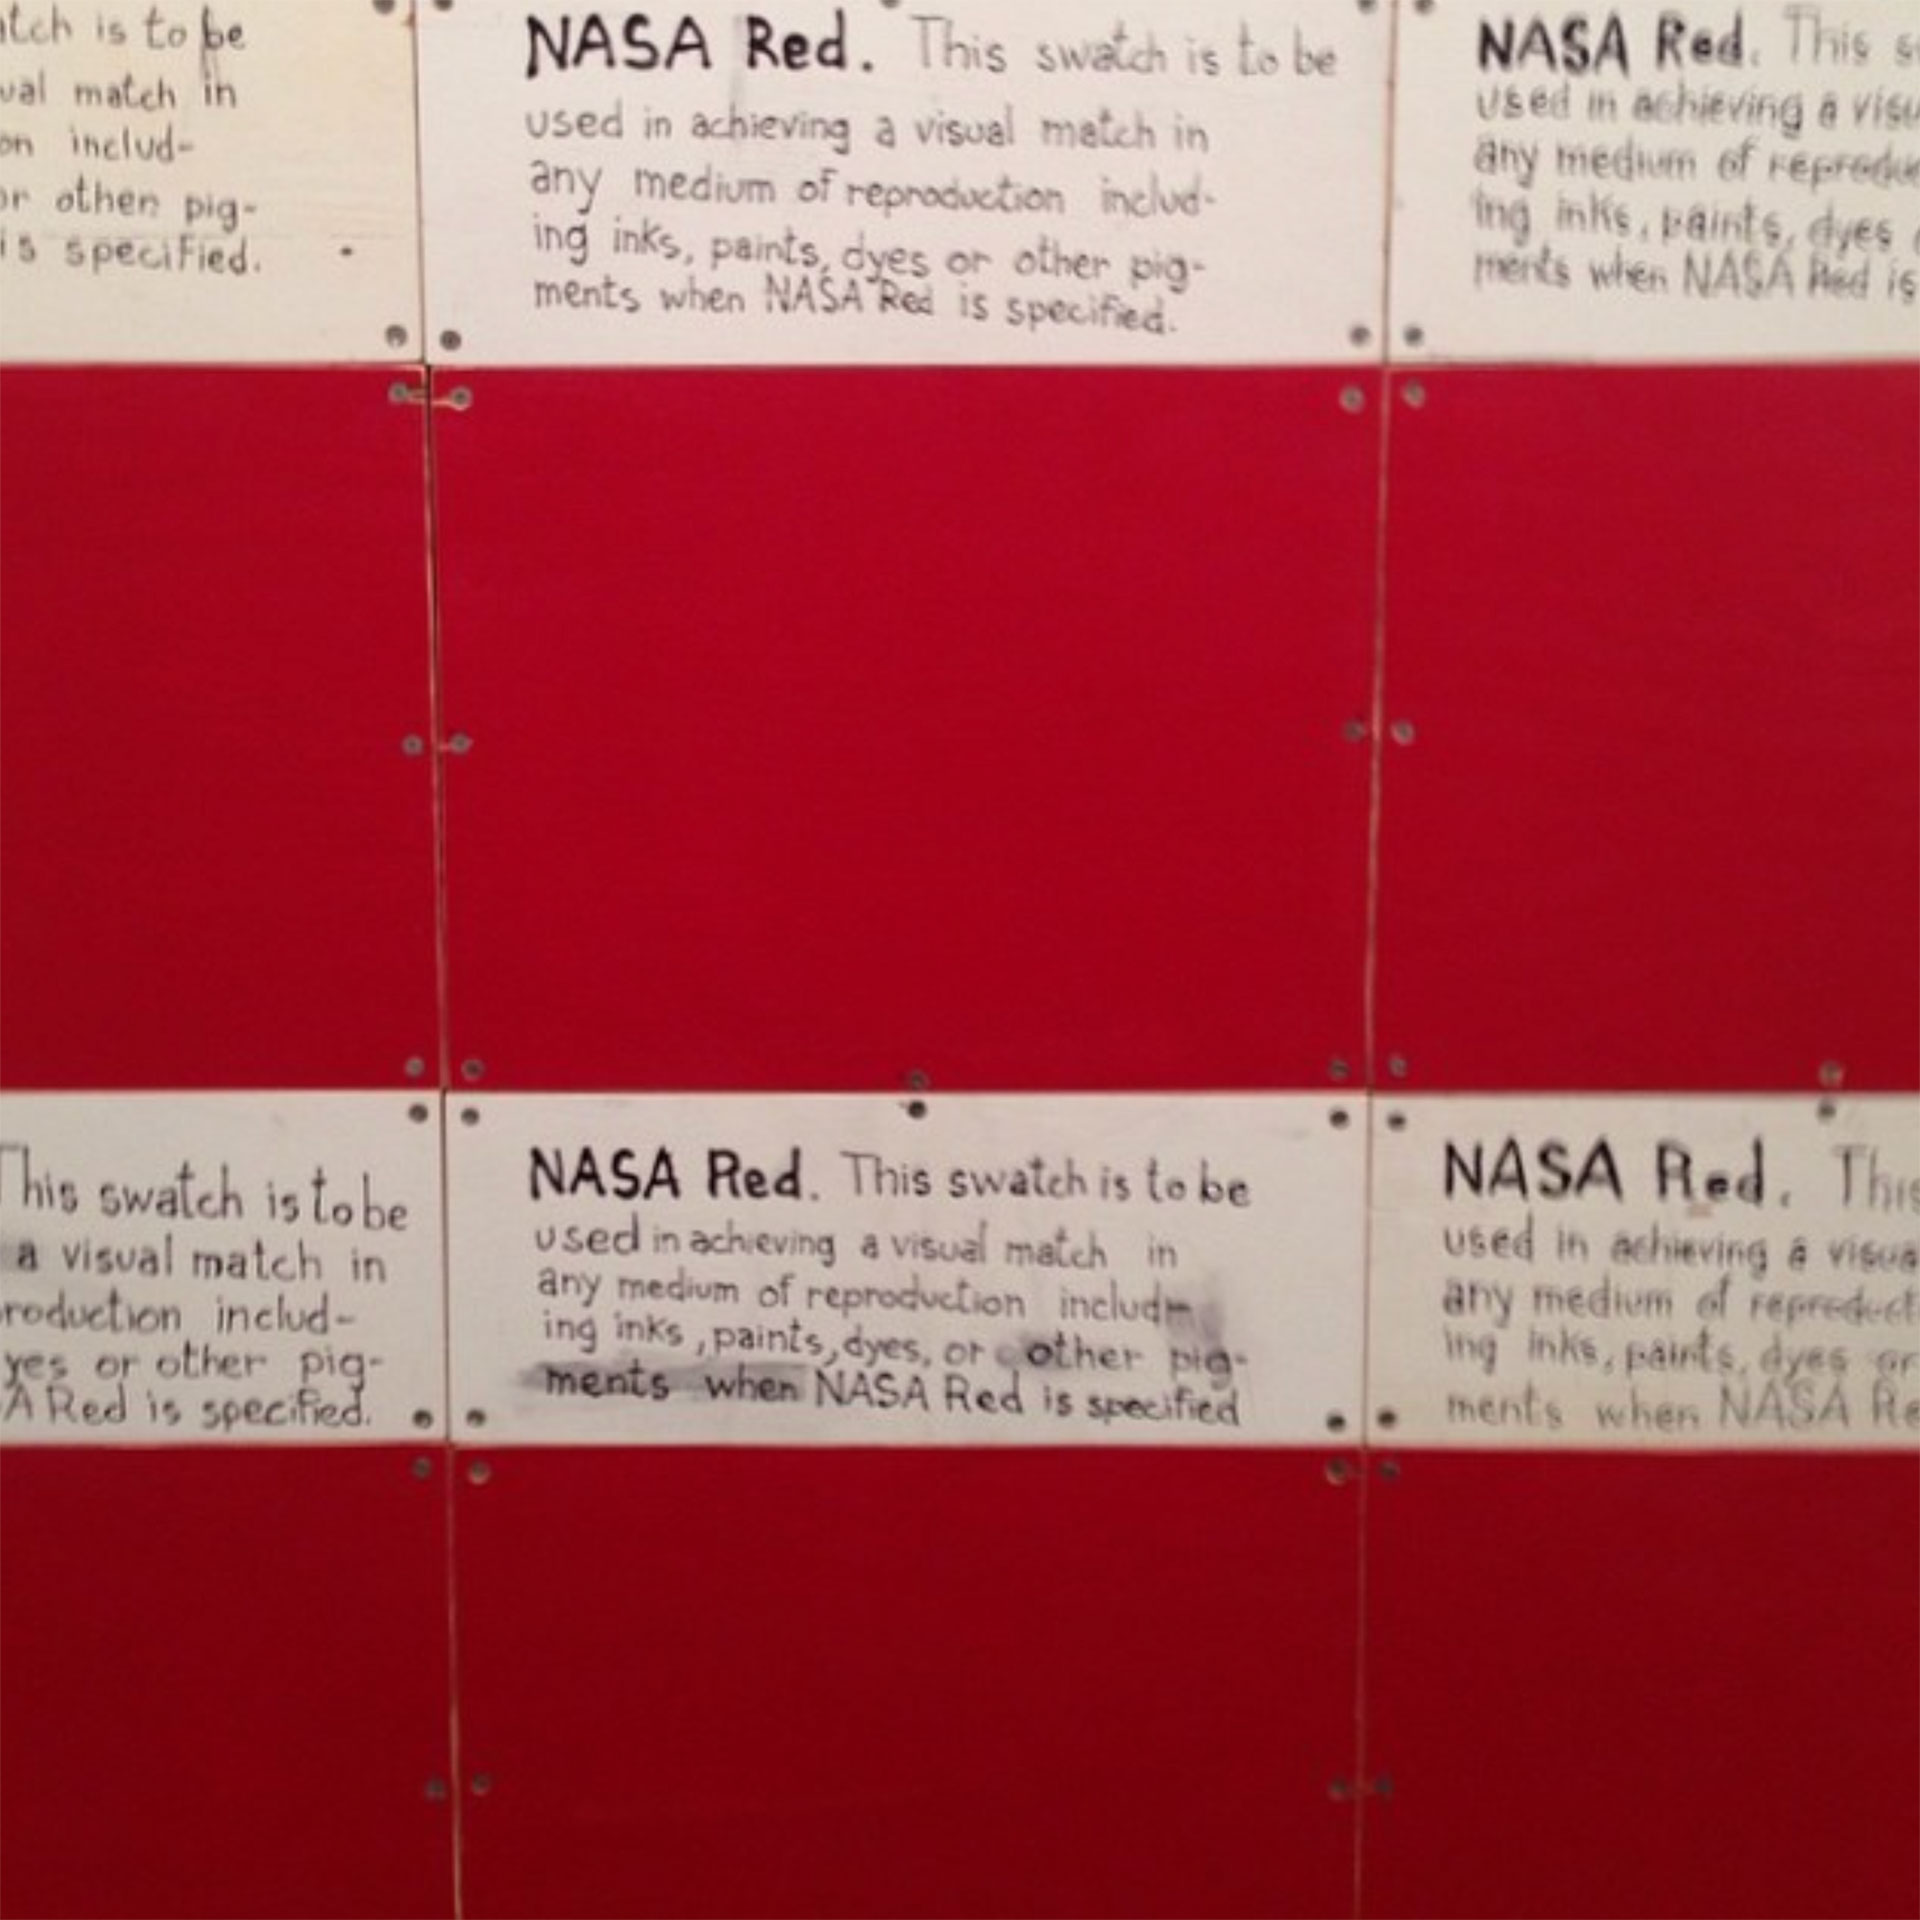 atch is to be
ual match in
on includ-
or other pig-
is specified.
NASA Red. This swatch is to be
used in achieving a visual match in
any medium of reproduction includ-
ing inks, paints, dyes or other pig-
ments when NASA Red is specified.
NASA Red. This s
used in achieving a visu
any medium of reproduc
ing inks, paints, dyes
ments when NASA Red is
This swatch is to be
a visual match in
roduction includ-
yes or other pig-
A Red is specified.
NASA Red. This swatch is to be
used in achieving a visual match in
any medium of reproduction includ-
ing inks, paints, dyes, or other pig-
ments when NASA Red is specified
NASA Red. This
used in achieving a visua
any medium of reproduct
ing inks, paints, dyes or
ments when NASA Re